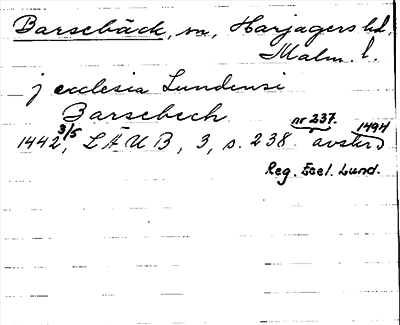 Barsebäck, sn, Harjagers hd,
Malm. l.
j ecclesia Lundensi
Barsebech
1442 3/5, LÄUB, 3, s. 238 nr 237. avskr 1494
Reg. Eccl. Lund.